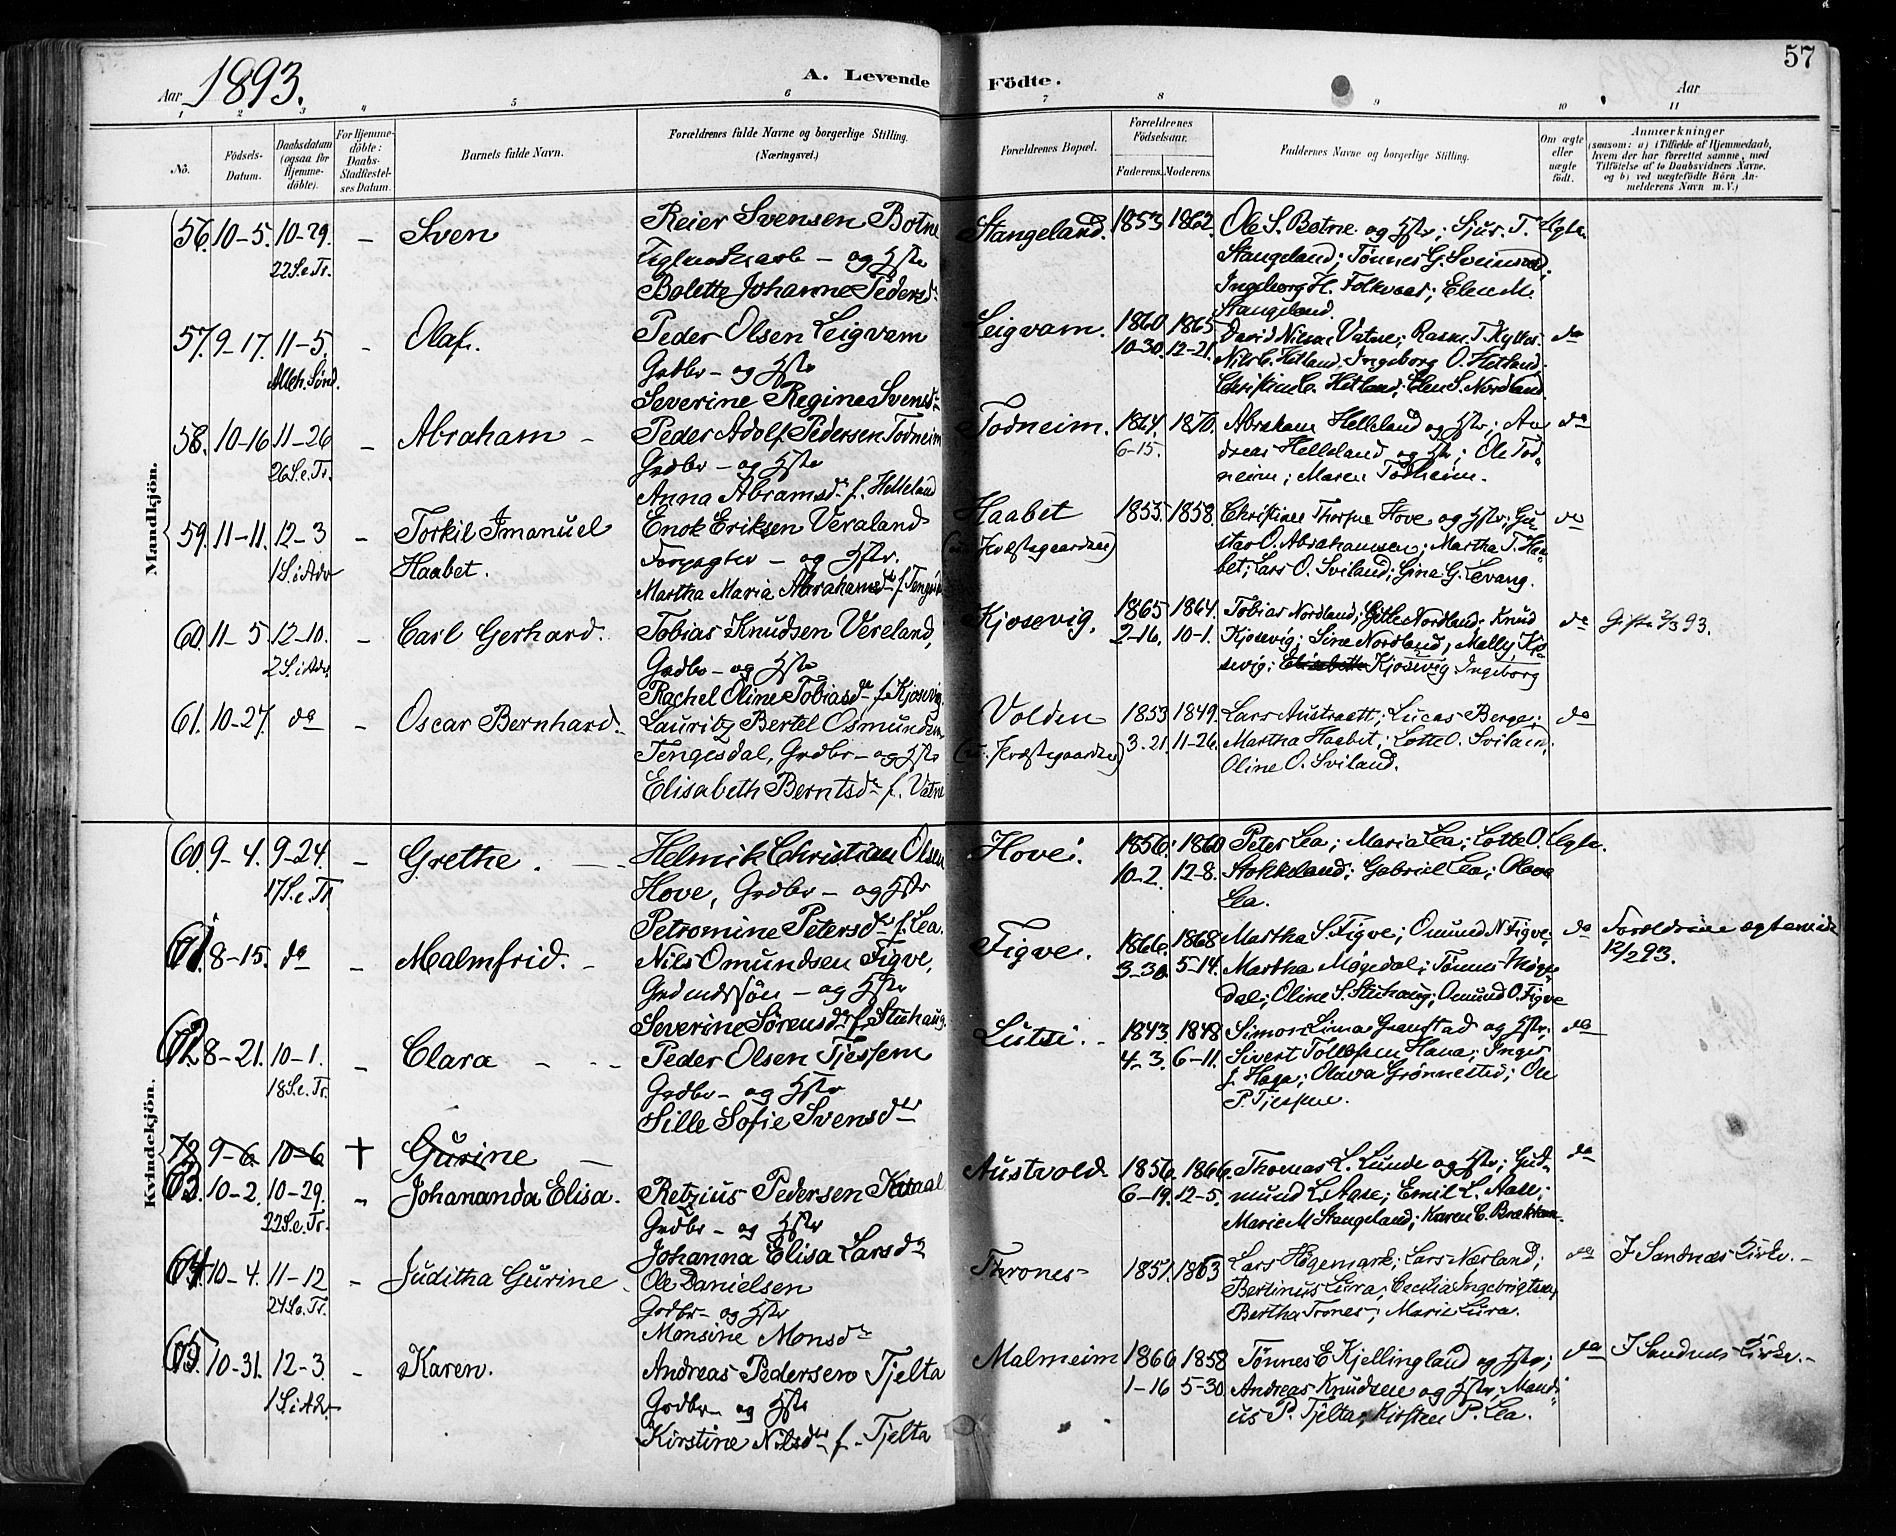 57
Aar 1893.
A. Levende Födte.
Aar
1 2 3 4 5 6 7 8 9 10 11
No.
Födsels-Datum.
Daabsdatum (ogsaa for Hjemme-döbte).
For Hjemme-döbte: Daabs-Stadfæstel-ses Datum.
Barnets fulde Navn.
Forældrenes fulde Navne og borgerlige Stilling. (Næringsvei.)
Forældrenes Bopæl.
Forældrenes Födselsaar.
Faderens. Moderens.
Faddernes Navne og borgerlige Stilling.
Om ægte eller uægte födt.
Anmærkninger
(saasom: a) i Tilfælde af Hjemmedaab, hvem der har forrettet samme, med Tilföielse af to Daabsvidners Navne, og b) ved uægtefödte Börn An-melderens Navn m. V.)
Mandkjön.
56. 10-5. 10-29. - Sven
22 S.e.Tr.
Reier Svensen Botne
- og Hstr
Bolette Johanne Pedersdr
Stangeland. 1853 1862.
Ole S. Botne og Hstr; Sjur T.
Stangeland; Tønnes G.
Ingeborg H. Folkvord; Elen M.
Stangeland.
Ægte.
57. 9-17. 11-5. - Olaf.
Alleh. Sønd.
Peder Olsen Leigvam
Grdbr - og Hstr
Severine Regine Svensdr
Leigvam. 1860 1865
10-30. 12-21.
David Nilsen Vatne; Rasm. T.
Nils C. Hetland; Ingeborg O. Hetland
Christine C. Hetland; Elen S. Nordland
do
58. 10-16 11-26 - Abraham -
26 S.e.Tr.
Peder Adolf Pedersen Todneim
Grdbr - og Hstr
Anna Abramsdr f. Helleland
Todneim. 1864. 1870.
6-15.
Abraham Helleland og Hstr; An
dreas Helleland og Hstr; Ole Tod-
neim; Maren Todneim.
do
59. 11-11. 12-3 - Torkil Imanuel
1 S. i Adv Haabet.
Enok Eriksen Veraland
Forpagter - og Hstr.
Martha Maria Abrahamsdr f.
Haabet 1855. 1858.
(u. Præstegaarden)
Christian Thorsen Hove og Hstr; Gu-
stav O. Abrahamsen; Martha T. Haa-
bet; Lars O. Sviland; Gina G. Levang.
do
60. 11-5 12-10. - Carl Gerhard.
2 S. i Adv
Tobias Knudsen Vereland,
Grdbr - og Hstr
Rachel Oline Tobiasdr f. Kjosevig
Kjosevig, 1865 1864.
2-16. 10-1.
Tobias Nordland; Gitle Nordland; Knud
Kjosevig; Sine Nordland, Mally Kjo-
sevig; Elisabeth Kjosevig Ingeborg
do
Gifte 2/3 93.
61. 10-27. do - Oscar Bernhard.
Lauritz Bertel Osmundsen
Tengesdal, Grdbr - og Hstr
Elisabeth Berntsdr f. Vatne
Volden 1853 1849.
(u. Præstegaarden) 3-21. 11-26.
Lars Austraatt; Lucas Berge;
Martha Haabet; Lotte O. Sviland;
Oline O. Sviland.
do
Kvindekjön.
60. 9-4. 9-24. - Grethe.
17 S.e.Tr.
Helmik Christian Olsen
Hove, Grdbr - og Hstr
Petromine Petersdr f. Lea.
Hove. 1856. 1860
10-2. 12-8.
Peter Lea; Maria Lea; Lotte O.
Stokkeland; Gabriel Lea; Olava
Lea.
Ægte.
61. 8-15. do - Malmfrid. -
Nils Omundsen Figve,
Grdmdssøn - og Hstr
Severine Sørensdr f. Stuhaug
Figve. 1866. 1868
3-30. 5-14.
Martha S. Figve; Omund N Figve;
Martha Møgedal; Tønnes Møge-
dal; Oline S. Stuhaug; Omund O. Figve
do
Forældrene ægteviede
12/2 93.
62. 8-21. 10-1. - Clara - - -
18 S.e.Tr.
Peder Olsen Tjessem
Grdbr - og Hstr
Sille Sofie Svensdr
Lutsi. - 1843. 1848
4-3. 6-11.
Simon Limas Grønstad og Hstr;
Sivert Tollefsen Hana; Inger
J. Haga; Olava Grønnestad; Ole
P. Tjessem.
do
9-6 10-6 † Gurine -
63. 10-2. 10-29. - Johananda Elisa.
22 S.e.Tr.
Retzius Pedersen
Grdbr - og Hstr
Johanna Elisa Larsdr
Austvold 1856. 1866.
6-19. 12-5.
Thomas L. Lunde og Hstr; Gud-
mund L. Aase; Emil L. Aase;
Marie M Stangeland; Karen C. Brekken.
do
64. 10-4. 11-12 - Juditha Gurine.
24 S.e.Tr.
Ole Danielsen
Grdbr - og Hstr
Monsine Monsdr
Thrones - 1857. 1863
Lars Høgemark; Lars Nærland;
Bertinus Lura; Cecilia Ingebrigtsen
Bertha Trones; Marie Lura.
do
I Sandnæs Kirke. -
65. 10-31. 12-3. - Karen.
1 S. i Adv.
Andreas Pedersen Tjelta
Grdbr - og Hstr
Kirstine Nilsdr f. Tjelta
Malmeim 1866 1858
1-16 5-30.
Tønnes E Kjellingland og Hstr;
Andreas Knudsen og Hstr; Mand-
ius P. Tjelta; Kirsten P. Lea.
do
I Sandnæs Kirke. -